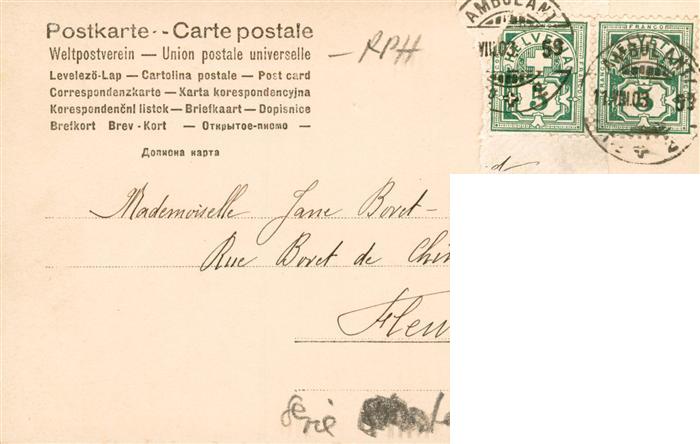 Postkarte -- Carte postale
Weltpostverein — Union postale universelle
Levelező-Lap — Cartolina postale — Post card
Correspondenzkarte — Karta korespondencyjna
Korespondenční listok — Briefkaart — Dopisnice
Brefkort Brev-Kort — Открытое-писмо —
Дописна карта
RPH
AMBULANT
VIII.03 53
HELVETIA
5
FRANCO
HELVETIA
5
AMBULANT
11.VIII.03 53
Mademoiselle Jane Bovet-
Rue Bovet de Chin
Fleu
série